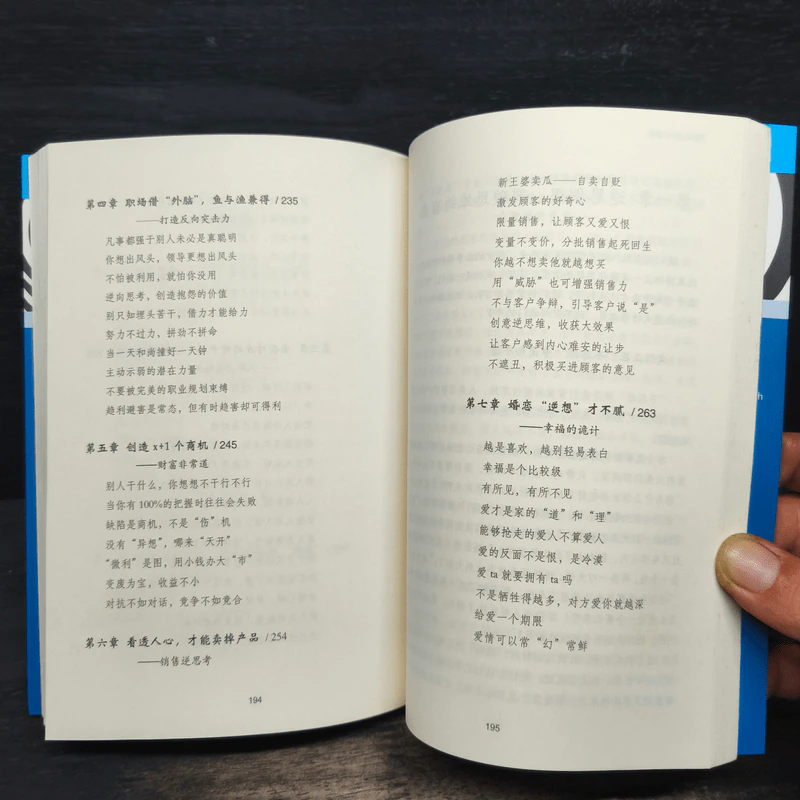 第四章 职场借“外脑”，鱼与渔兼得 / 235
——打造反向突击力
凡事都强于别人未必是真聪明
你想出风头，领导更想出风头
不怕被利用，就怕你没用
逆向思考，创造抱怨的价值
别只知埋头苦干，借力才能给力
努力不过力，拼劲不拼命
当一天和尚撞好一天钟
主动示弱的潜在力量
不要被完美的职业规划束缚
趋利避害是常态，但有时趋害却可得利
第五章 创造 x+1 个商机 / 245
——财富非常道
别人干什么，你想想不干行不行
当你有 100%的把握时往往会失败
缺陷是商机，不是“伤”机
没有“异想”，哪来“天开”
“微利”是图，用小钱办大“市”
变废为宝，收益不小
对抗不如对话，竞争不如竞合
第六章 看透人心，才能卖掉产品 / 254
——销售逆思考
194
新王婆卖瓜——自卖自贬
激发顾客的好奇心
限量销售，让顾客又爱又恨
变量不变价，分批销售起死回生
你越不想卖他就越想买
用“威胁”也可增强销售力
不与客户争辩，引导客户说“是”
创意逆思维，收获大效果
让客户感到内心难安的让步
不遮丑，积极买进顾客的意见
第七章 婚恋“逆想”才不腻 / 263
——幸福的诡计
越是喜欢，越别轻易表白
幸福是个比较级
有所见，有所不见
爱才是家的“道”和“理”
能够抢走的爱人不算爱人
爱的反面不是恨，是冷漠
爱 ta 就要拥有 ta 吗
不是牺牲得越多，对方爱你就越深
给爱一个期限
爱情可以常“幻”常鲜
195
h